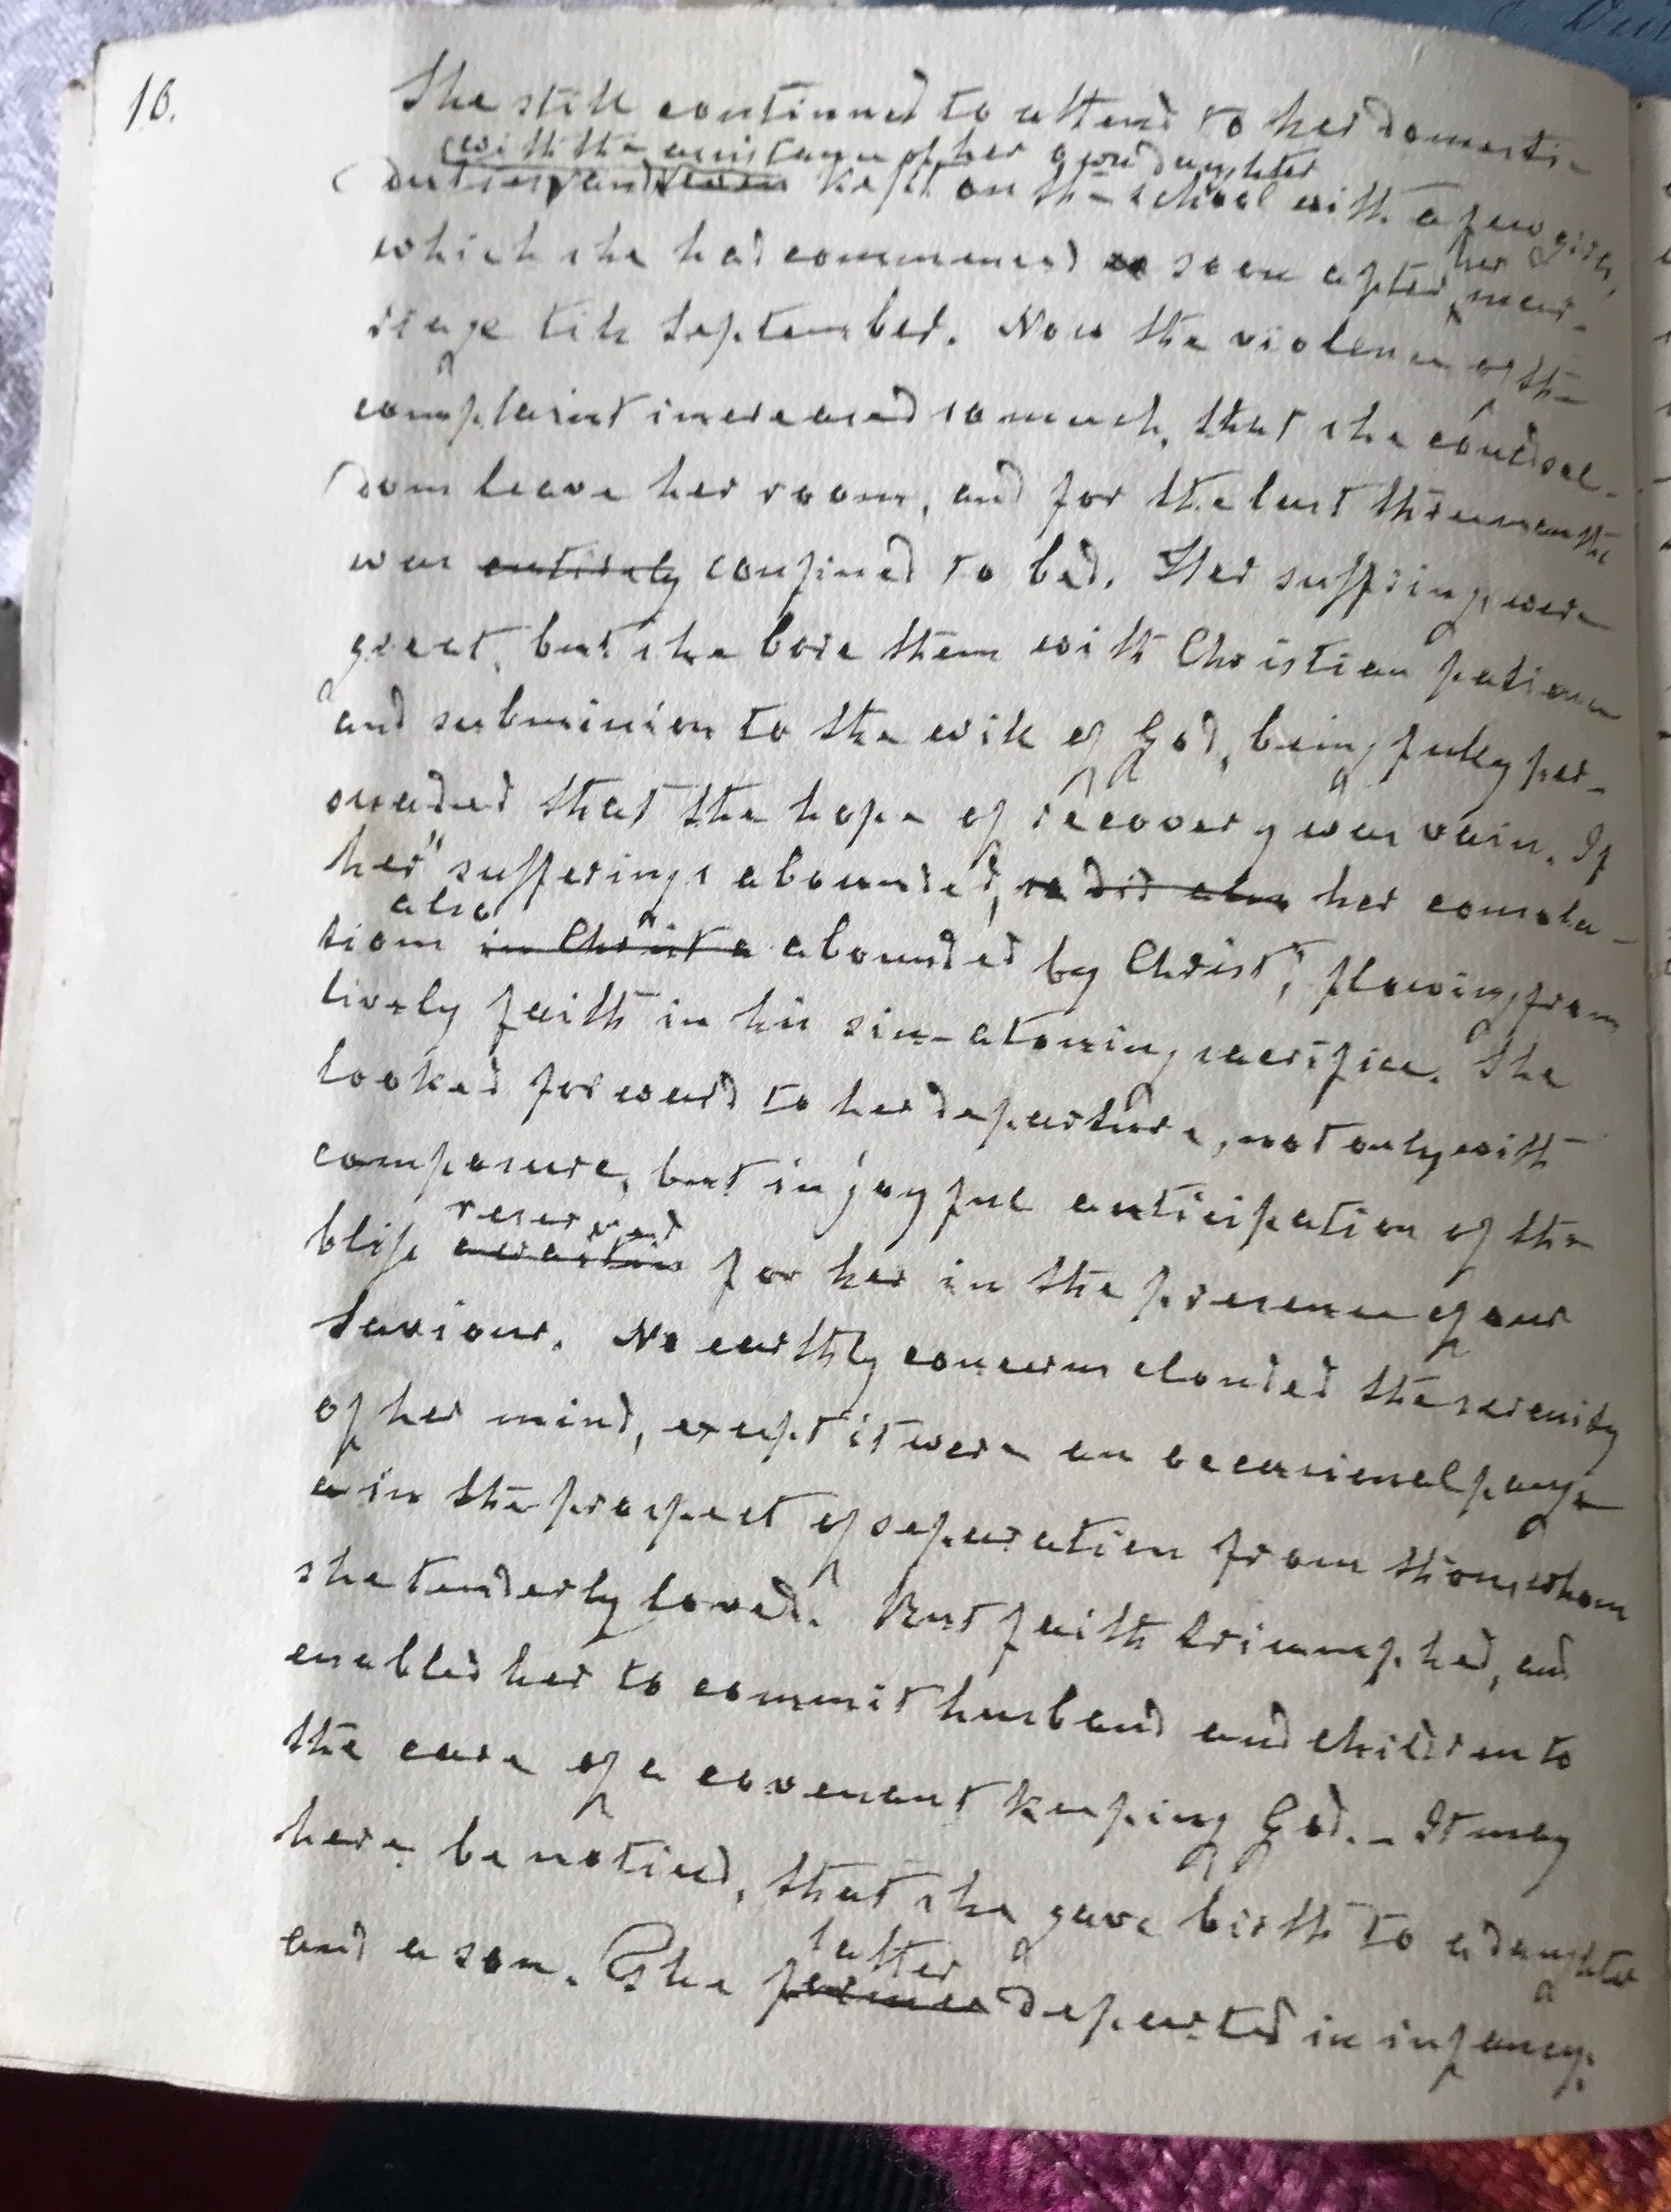 10.
She still continued to attend to her domestic
with the assistance of her own daughter
duties, and even kept on the school with a few girls,
which she had commenced soon after her mar-
riage till September. Now the violence of the
complaint increased so much, that she could sel-
dom leave her room, and for the last three months
was entirely confined to bed. Her suffrings were
great, but she bore them with Christian patience
and submission to the will of God, being fully per-
suaded that the hope of recovery was vain. If
her "sufferings abounded, so did also her consola-
also
tions in Christ abounded by Christ", flowing from
lively faith in his sin-atoning sacrifice. She
looked forward to her departure, not only with
composure, but in joyful anticipation of the
reserved
bliss awaiting for her in the presence of our
Saviour. No earthly concerns clouded the serenity
of her mind, except it were an occasional pange
in the prospect of separation from those, whom
she tenderly loved. But faith triumphed, and
enabled her to commit husband and children to
the care of a covenant keeping God. – It may
here be noticed, that she gave birth to a daughter
latter
and a son. The former departed in infancy.